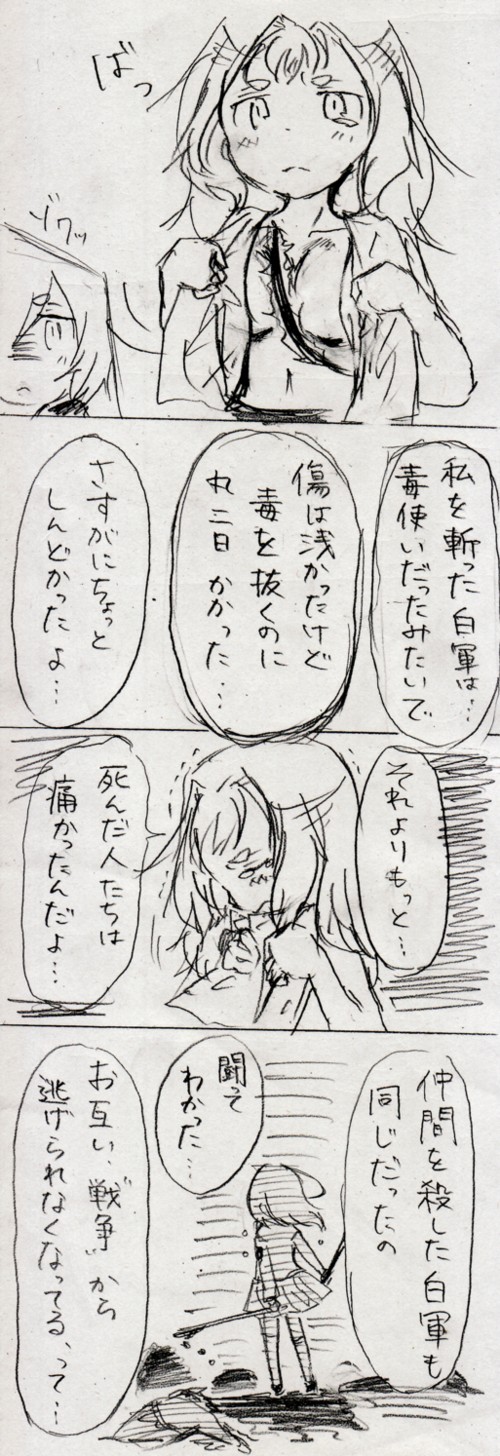 ばっ
ゾワッ
私を斬った白軍は…
毒使いだったみたいで
傷は浅かったけど
毒を抜くのに
丸二日かかった…
さすがにちょっと
しんどかったよ…
それよりもっと…
死んだ人たちは
痛かったんだよ…
仲間を殺した白軍も
同じだったの
闘って
わかった…
お互い、"戦争"から
逃げられなくなってる、って…